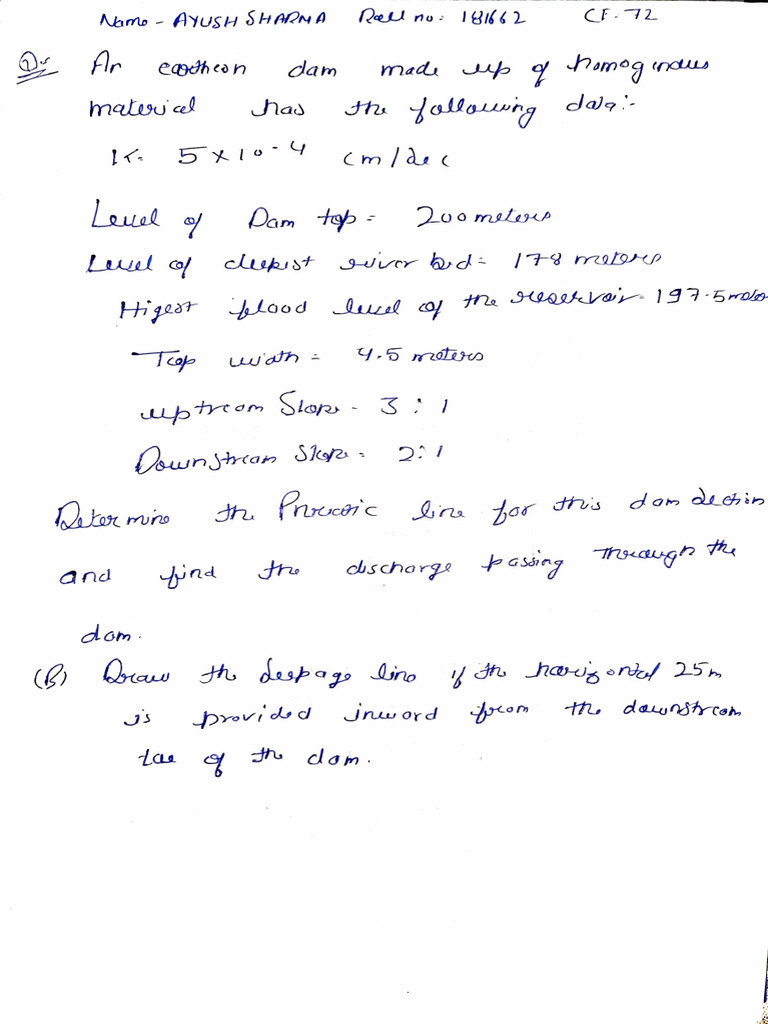 Name - AYUSH SHARMA Roll no: 181662 CF-72
Q1 An earthen dam made up of homoginous
material has the following data:-
K = 5 x 10-4 cm/sec
Level of Dam top = 200 meters
Level of deepist river bed = 178 meters
Higest flood level of the reservoir = 197.5 meter
Top width = 4.5 meters
upstream Slope - 3 : 1
Downstream Slope = 2:1
Determine the line for this dam section
and find the discharge passing through the
dam.
(B) Draw the seepage line if the horizontal 25m
is provided inword from the downstream
toe of the dam.